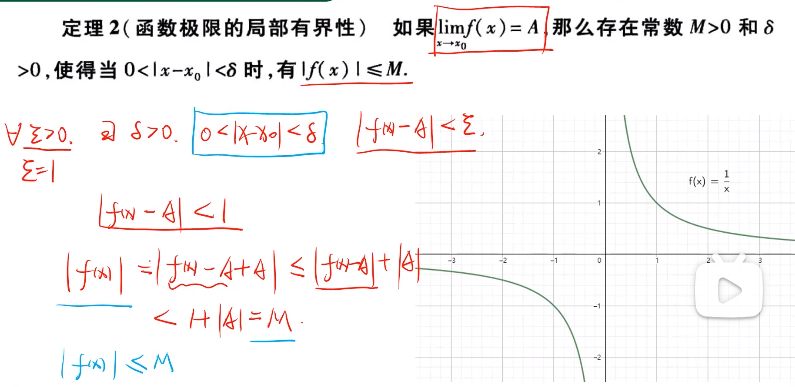 定理 2(函数极限的局部有界性) 如果 lim f(x)=A, 那么存在常数 M>0 和 δ
x→x₀
>0,使得当 0<|x-x₀|<δ 时,有|f(x)|≤M.
∀ ε>0. ∃ δ>0. 0<|x-x₀|<δ |f(x)-A|<ε.
ε=1
|f(x)-A|<1
|f(x)|=|f(x)-A+A|≤|f(x)-A|+|A|
<1+|A|=M.
|f(x)|≤M
f(x) = 1/x
2
1
-3 -2 -1 0 1 2 3
-1
-2